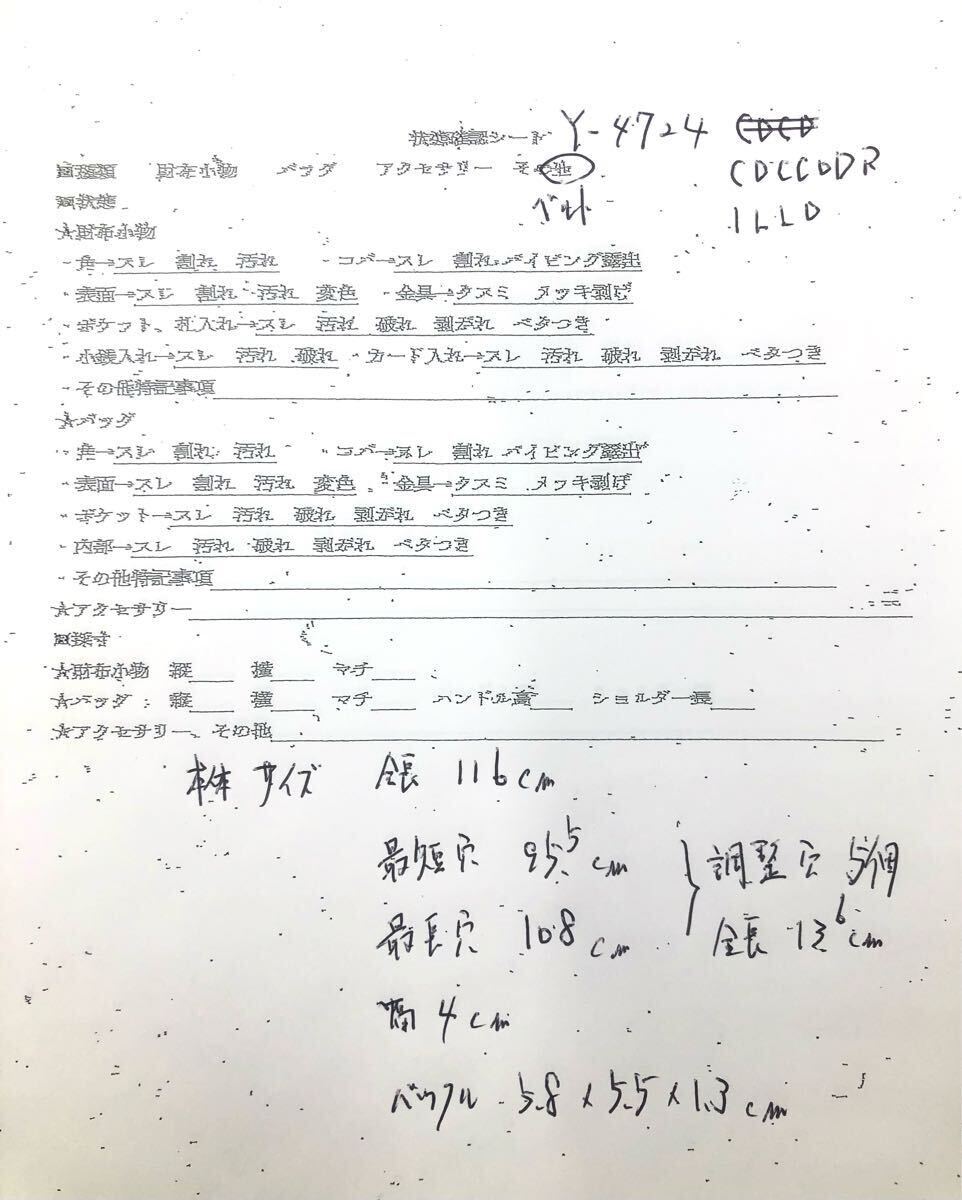 状態確認シート Y-4724 CDCD
■種類 財布小物 バッグ アクセサリー その他 CDCCDDR
ベルト 1LLD
■状態
★財布小物
・角→スレ 割れ 汚れ ・コバ→スレ 割れ パイピング露出
・表面→スレ 割れ 汚れ 変色 ・金具→クスミ メッキ剥げ
・ポケット、札入れ→スレ 汚れ 破れ 剥がれ ベタつき
・小銭入れ→スレ 汚れ 破れ ・カード入れ→スレ 汚れ 破れ 剥がれ ベタつき
・その他特記事項
★バッグ
・角→スレ 割れ 汚れ ・コバ→スレ 割れ パイピング露出
・表面→スレ 割れ 汚れ 変色 ・金具→クスミ メッキ剥げ
・ポケット→スレ 汚れ 破れ 剥がれ ベタつき
・内部→スレ 汚れ 破れ 剥がれ ベタつき
・その他特記事項
★アクセサリー
■採寸
★財布小物 縦 横 マチ
★バッグ:縦 横 マチ ハンドル高 ショルダー長
★アクセサリー、その他
本体サイズ 全長 116cm
最短穴 95.5cm 調整穴 5個
最長穴 108cm 全長 13.6cm
幅 4cm
バックル 5.8×5.5×1.3cm